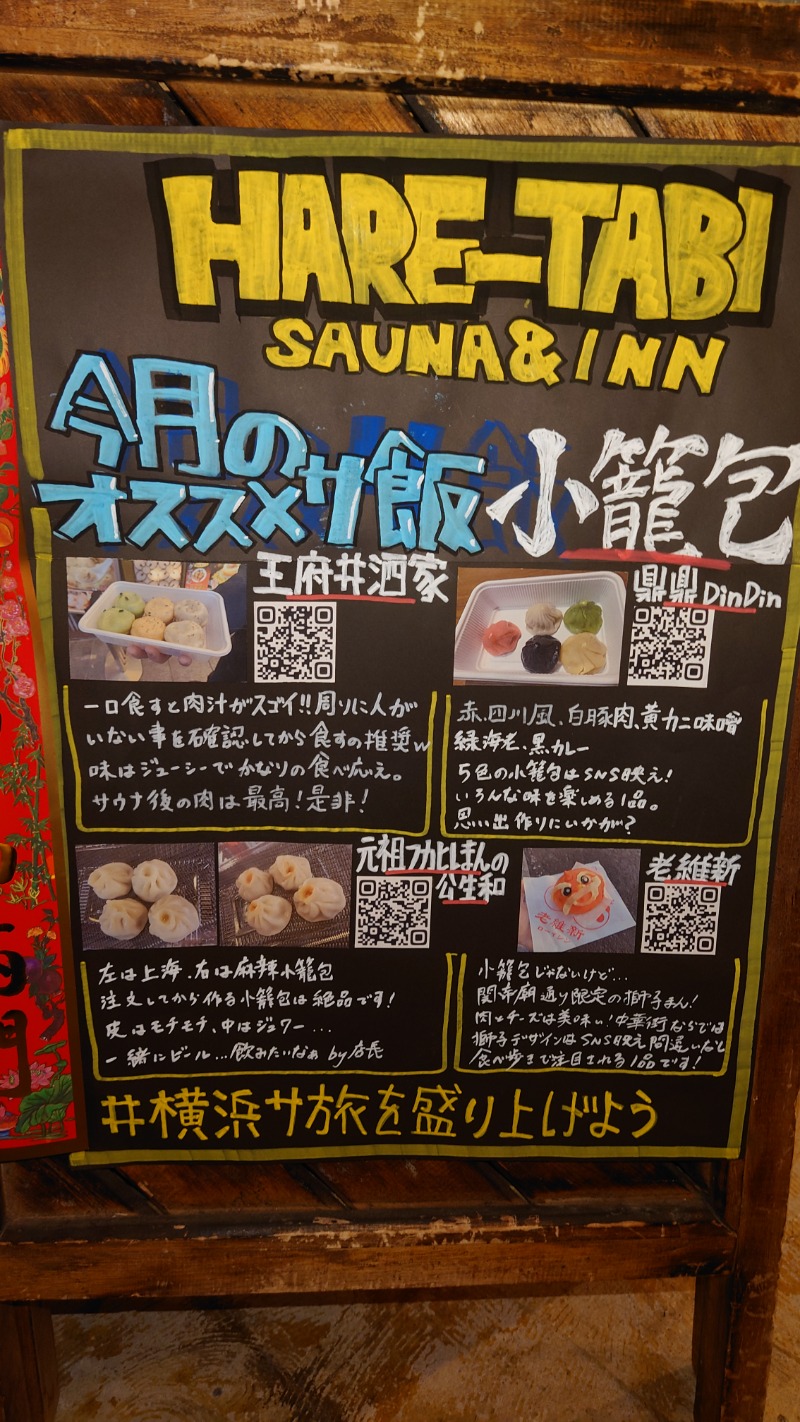 HARE-TABI
SAUNA&INN
今月の
オススメサ飯 小籠包
王府井酒家
一口食すと肉汁がスゴイ!!周りに人が
いない事を確認してから食すの推奨w
味はジューシーでかなりの食べ応え。
サウナ後の肉は最高!是非!
鼎鼎 DinDin
赤、四川風、白豚肉、黄カニ味噌
緑海老、黒カレー
5色の小籠包はSNS映え!
いろんな味を楽しめる1品。
思い出作りにいかが?
元祖フカヒレまんの
公生和
左は上海、右は麻辣小籠包
注文してから作る小籠包は絶品です!
皮はモチモチ、中はジュワー...
一緒にビール...飲みたいなぁ by店長
老維新
小籠包じゃないけど...
関帝廟通り限定の獅子まん!
肉とチーズは美味い!中華街ならでは
獅子デザインはSNS映え間違いなし
食べ歩きで注目される1品です!
老維新
#横浜サ旅を盛り上げよう
門